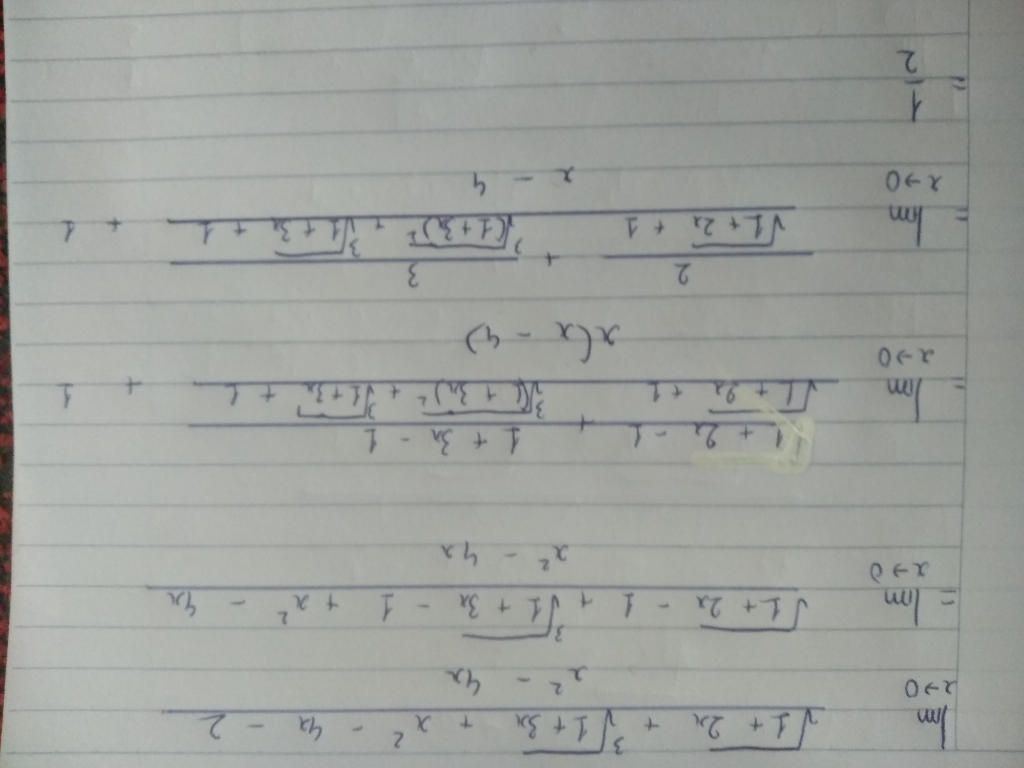 lim x→0 (√(1 + 2x) + ∛(1 + 3x) + x² - 4x - 2) / (x² - 4x)
= lim x→0 (√(1 + 2x) - 1 + ∛(1 + 3x) - 1 + x² - 4x) / (x² - 4x)
= lim x→0 ((1 + 2x - 1) / (√(1 + 2x) + 1) + (1 + 3x - 1) / (∛(1 + 3x)² + ∛(1 + 3x) + 1)) / (x(x - 4)) + 1
= lim x→0 (2 / (√(1 + 2x) + 1) + 3 / (∛(1 + 3x)² + ∛(1 + 3x) + 1)) / (x - 4) + 1
= 1/2